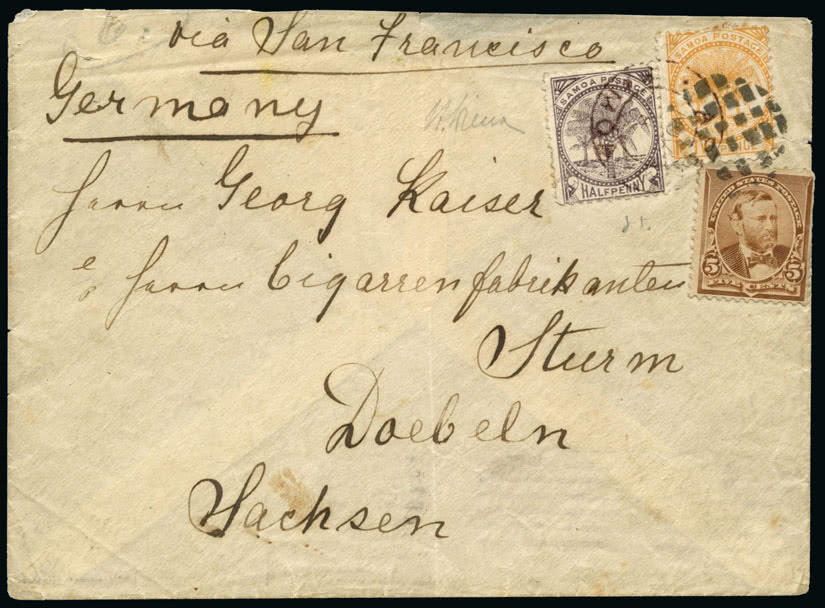 via San Francisco
Germany
Herrn Georg Kaiser
Herrn Cigarrenfabrikanten
Sturm
Doebeln
Sachsen
SAMOA POSTAGE
HALFPENNY
SAMOA POSTAGE
PENCE
UNITED STATES POSTAGE
5 5
FIVE CENTS